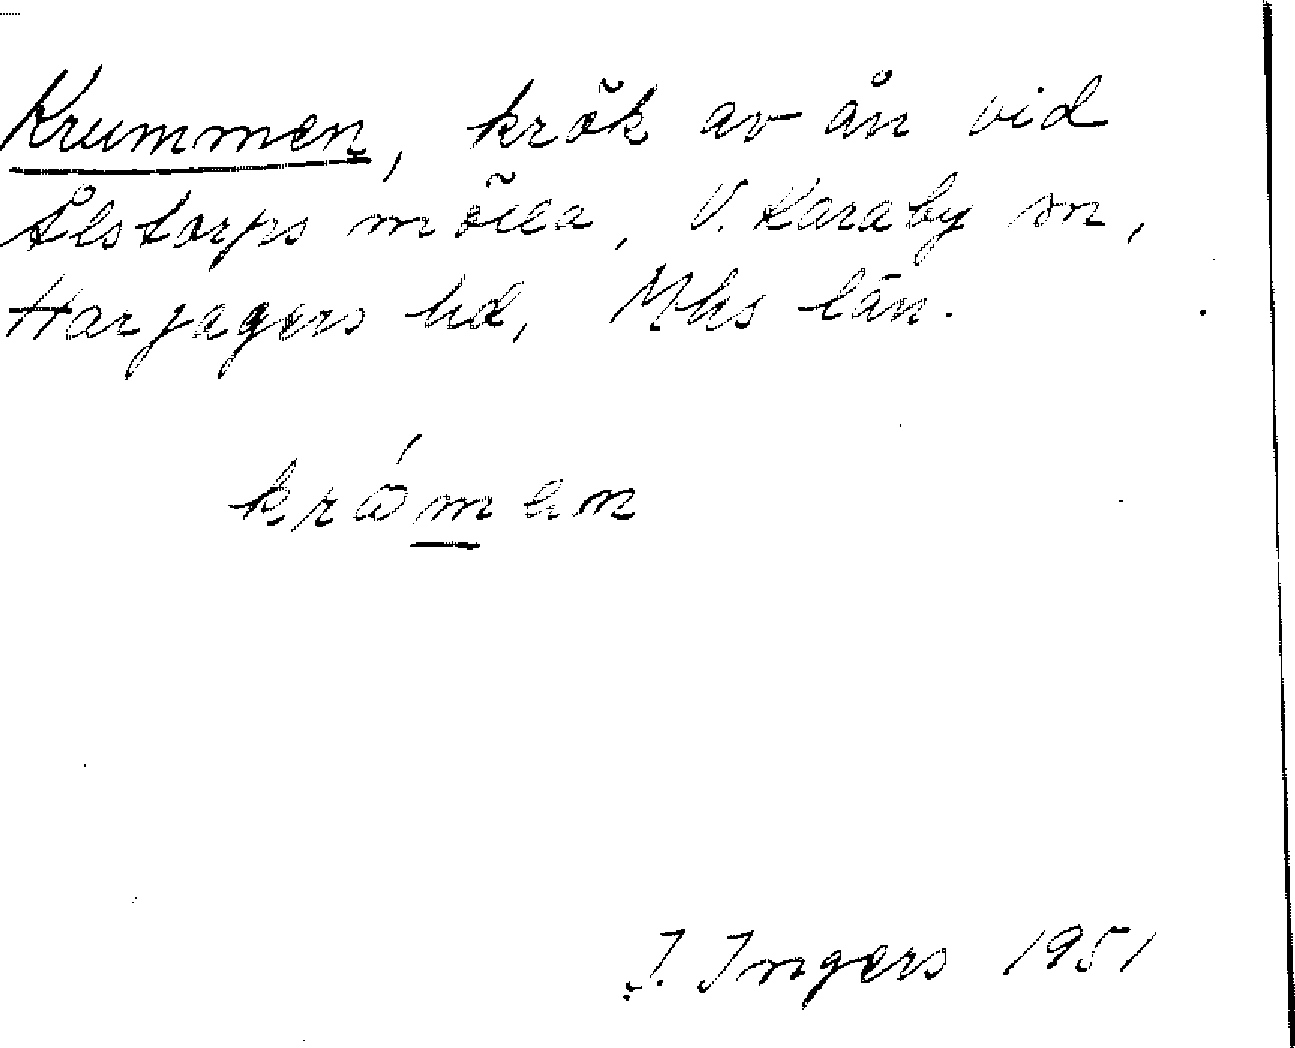 Krummen, krök av ån vid
Ålstorps mölla, V. Karaby sn,
Harjagers hd, Mhs län.
krώmen
I. Ingers 1951